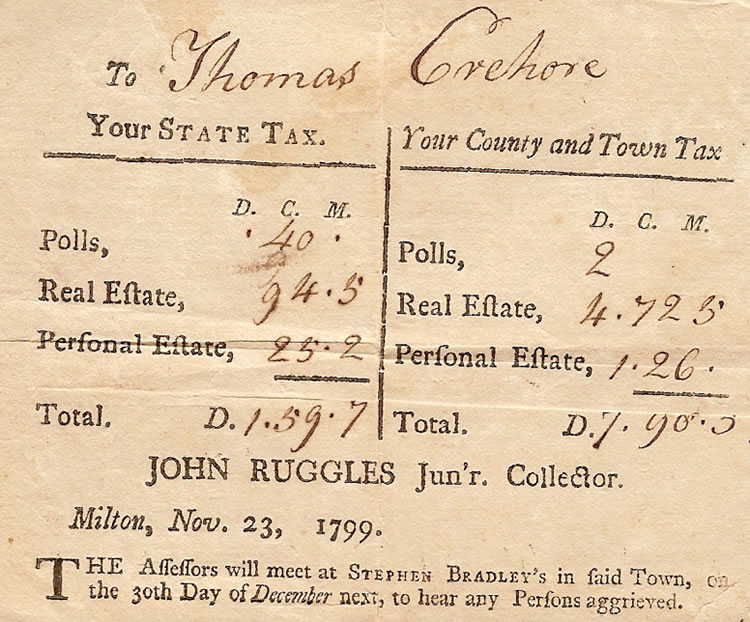 To Thomas Crehore
Your STATE TAX.
D. C. M.
Polls, .40.
Real Eſtate, 94.5
Perſonal Eſtate, 25.2
Total. D. 1.59.7
Your County and Town Tax
D. C. M.
Polls, 2
Real Eſtate, 4.725
Perſonal Eſtate, 1.26.
Total. D. 7.98.5
JOHN RUGGLES Jun'r. Collector.
Milton, Nov. 23, 1799.
THE Aſſeſſors will meet at STEPHEN BRADLEY's in ſaid Town, on
the 30th Day of December next, to hear any Perſons aggrieved.